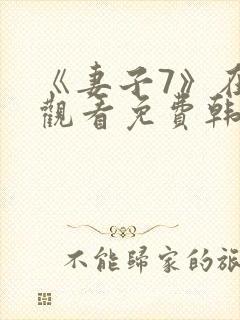 《妻子7》在
觀看免費韓
不能歸家的旅